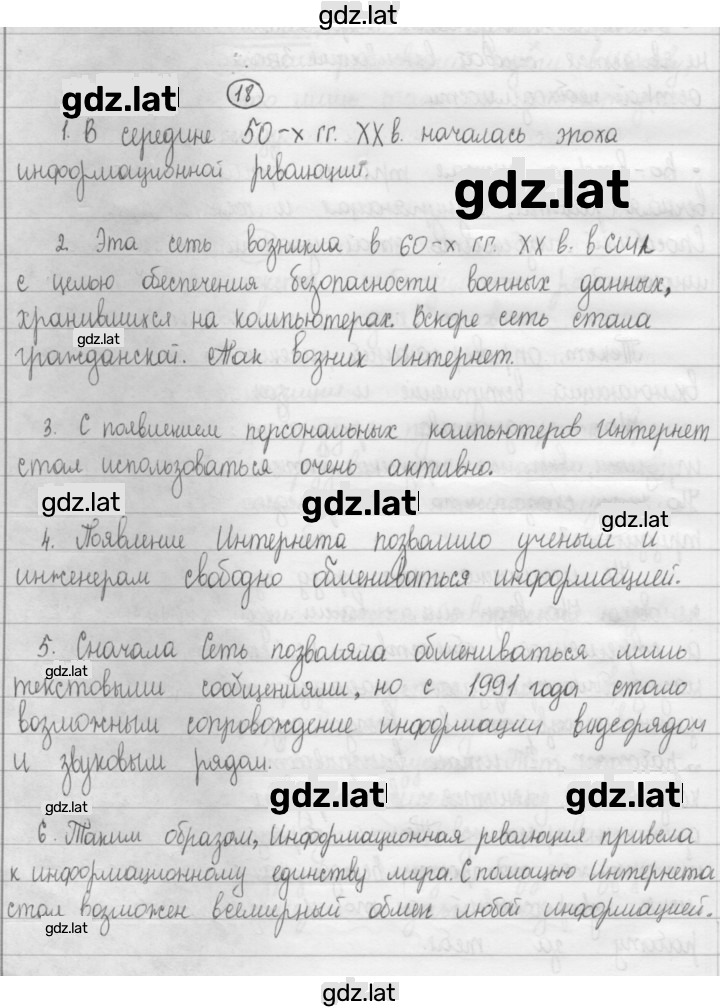 gdz.lat
gdz.lat
18
1. В середине 50-х гг. XX в. началась эпоха
информационной революции.
gdz.lat
2. Эта сеть возникла в 60-х гг. XX в. в США
с целью обеспечения безопасности военных данных,
хранившихся на компьютерах. Вскоре сеть стала
gdz.lat
гражданской. Так возник Интернет.
3. С появлением персональных компьютеров Интернет
стал использоваться очень активно.
gdz.lat
gdz.lat
gdz.lat
4. Появление Интернета позволило ученым и
инженерам свободно обмениваться информацией.
5. Сначала Сеть позволяла обмениваться лишь
gdz.lat
текстовыми сообщениями, но с 1991 года стало
возможным сопровождение информации видеорядом
и звуковым рядом.
gdz.lat
gdz.lat
gdz.lat
6. Таким образом, Информационная революция привела
к информационному единству мира. С помощью Интернета
стал возможен всемирный обмен любой информацией.
gdz.lat
gdz.lat